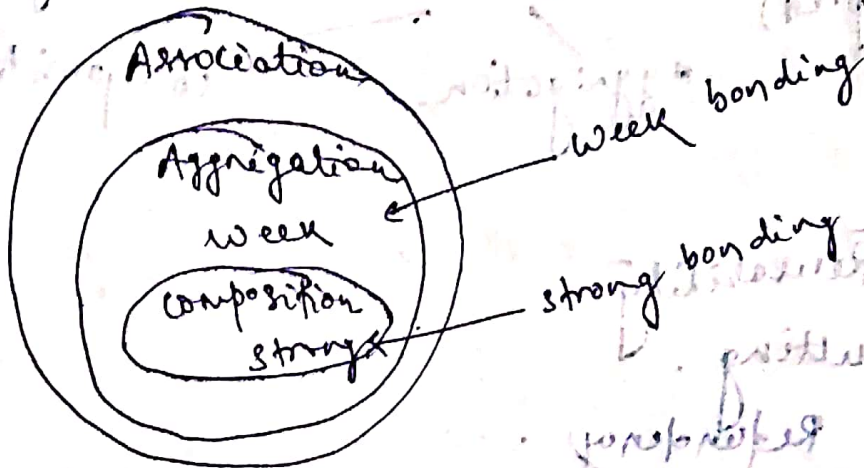 Association
Aggrigation
week
composition
strong
week bonding
strong bonding